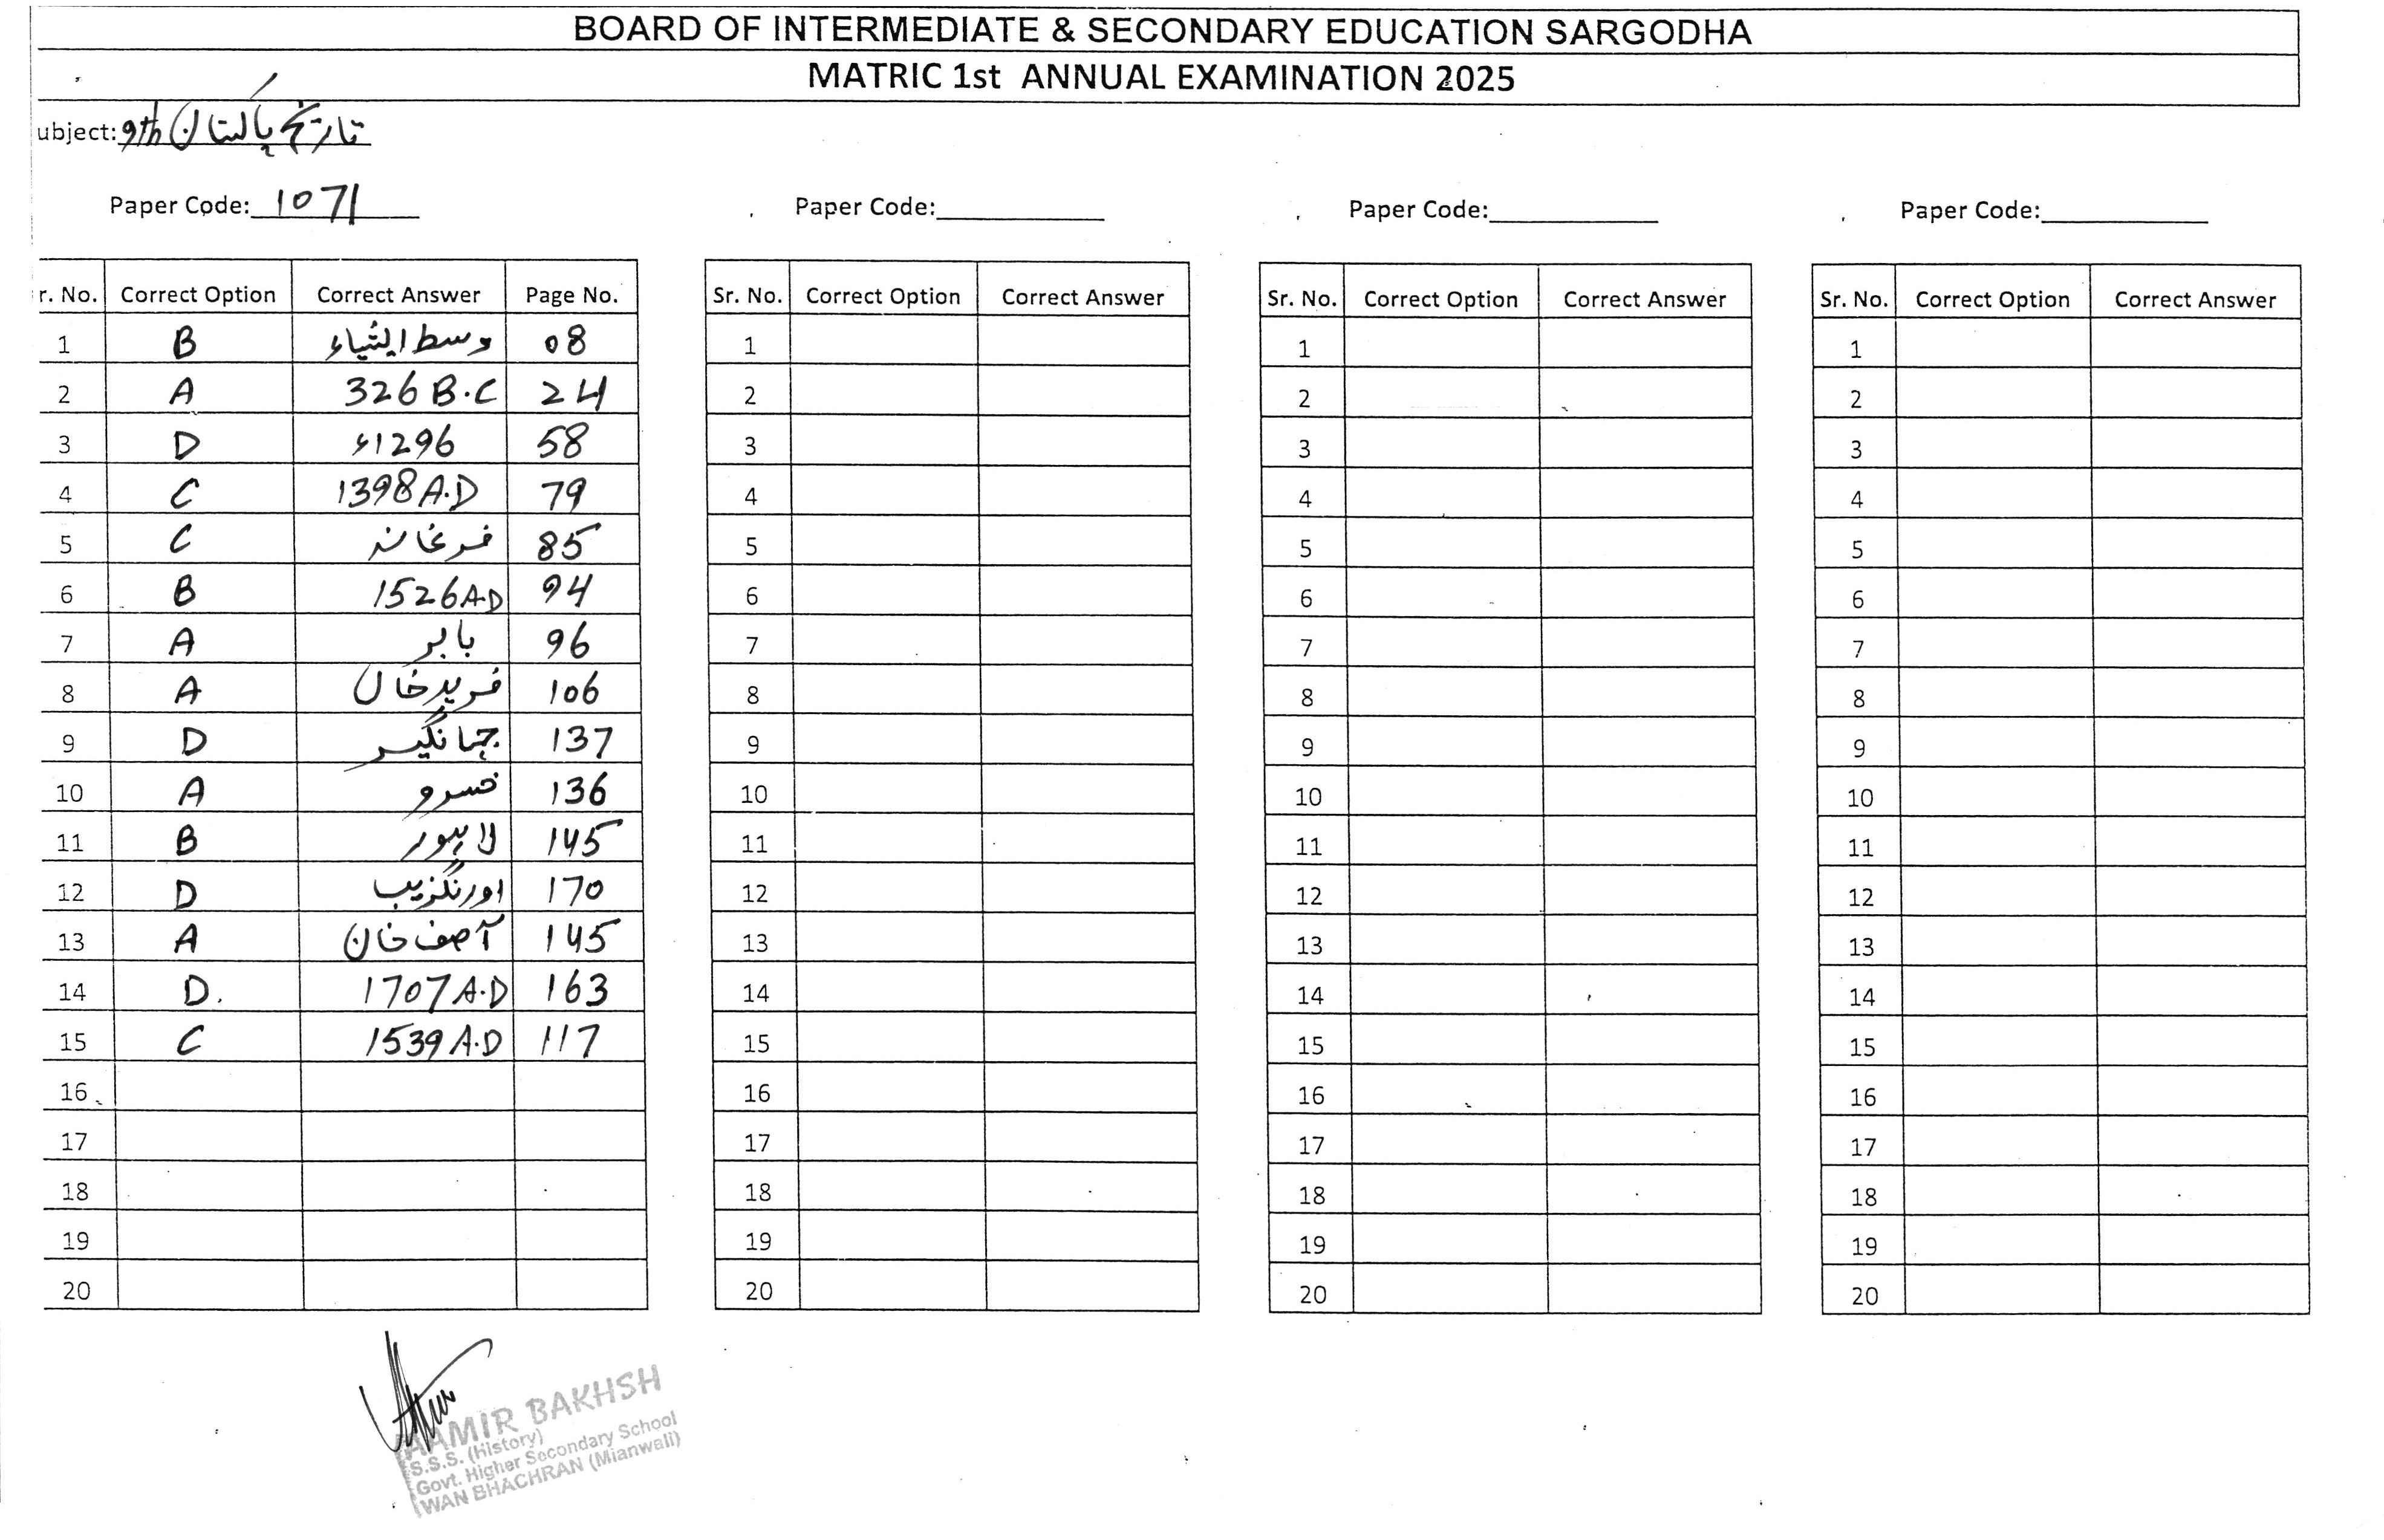 BOARD OF INTERMEDIATE & SECONDARY EDUCATION SARGODHA
MATRIC 1st ANNUAL EXAMINATION 2025
ubject: تاریخ پاکستان 9th
Paper Code: 1071 Paper Code: Paper Code: Paper Code:
r. No. Correct Option Correct Answer Page No. Sr. No. Correct Option Correct Answer Sr. No. Correct Option Correct Answer Sr. No. Correct Option Correct Answer
1 B وسط ایشیاء 08 1 1 1
2 A 326 B.C 24 2 2 2
3 D 1296ء 58 3 3 3
4 C 1398 A.D 79 4 4 4
5 C فرغانہ 85 5 5 5
6 B 1526 A.D 94 6 6 6
7 A بابر 96 7 7 7
8 A فرید خان 106 8 8 8
9 D جہانگیر 137 9 9 9
10 A خسرو 136 10 10 10
11 B لاہور 145 11 11 11
12 D اورنگزیب 170 12 12 12
13 A آصف خان 145 13 13 13
14 D. 1707 A.D 163 14 14 14
15 C 1539 A.D 117 15 15 15
16 16 16 16
17 17 17 17
18 18 18 18
19 19 19 19
20 20 20 20
AAMIR BAKHSH
S.S.S. (History)
Govt. Higher Secondary School
WAN BHACHRAN (Mianwali)